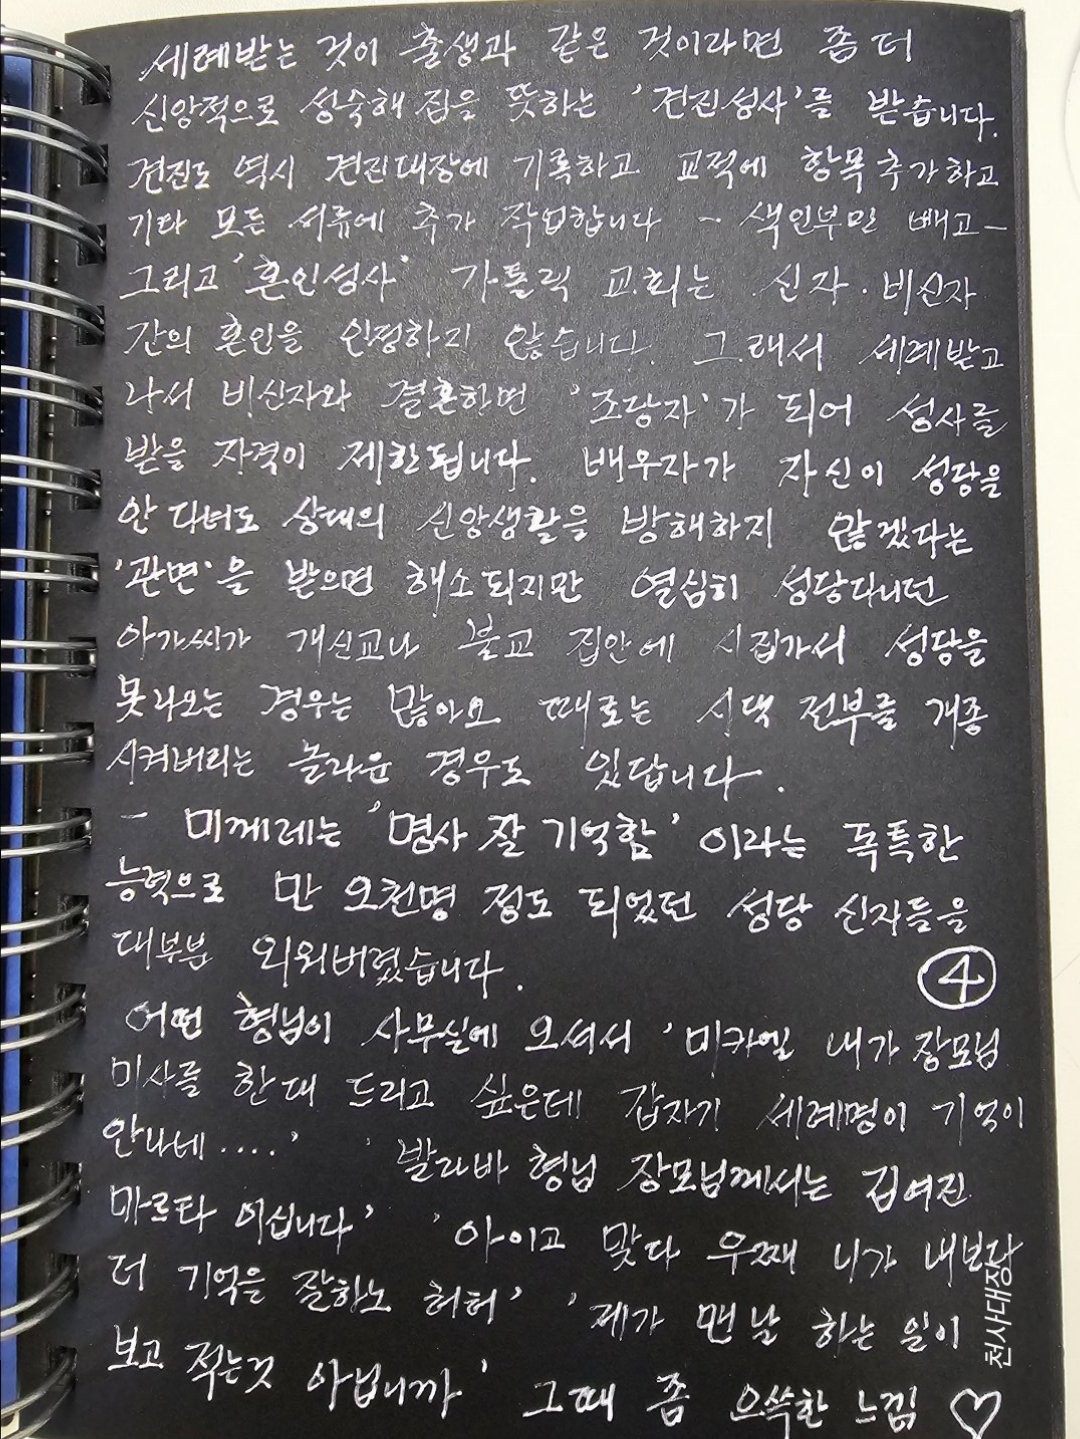 세례받는 것이 출생과 같은 것이라면 좀 더
신앙적으로 성숙해짐을 뜻하는 '견진성사'를 받습니다.
견진도 역시 견진대장에 기록하고 교적에 항목 추가하고
기타 모든 서류에 추가 작업합니다 - 색인부만 빼고 -
그리고 '혼인성사' 가톨릭 교회는 신자·비신자
간의 혼인을 인정하지 않습니다. 그래서 세례받고
나서 비신자와 결혼하면 '조당자'가 되어 성사를
받을 자격이 제한됩니다. 배우자가 자신이 성당을
안 다녀도 상대의 신앙생활을 방해하지 않겠다는
'관면'을 받으면 해소되지만 열심히 성당다니던
아가씨가 개신교나 불교 집안에 시집가서 성당을
못나오는 경우는 많아요 때로는 시댁 전부를 개종
시켜버리는 놀라운 경우도 있답니다.
- 미께레는 '명사 잘 기억함' 이라는 독특한
능력으로 만 오천명 정도 되었던 성당 신자들을
대부분 외워버렸습니다.
④
어떤 형님이 사무실에 오셔서 '미카엘 내가 장모님
미사를 한대 드리고 싶은데 갑자기 세례명이 기억이
안나네....' '발라바 형님 장모님께서는 김여진
마르타 이십니다' '아이고 맞다 우째 니가 내보다
더 기억을 잘하노 허허' '제가 맨날 하는 일이
보고 적는것 아닙니까' 그때 좀 으쓱한 느낌 ♡
천사대장